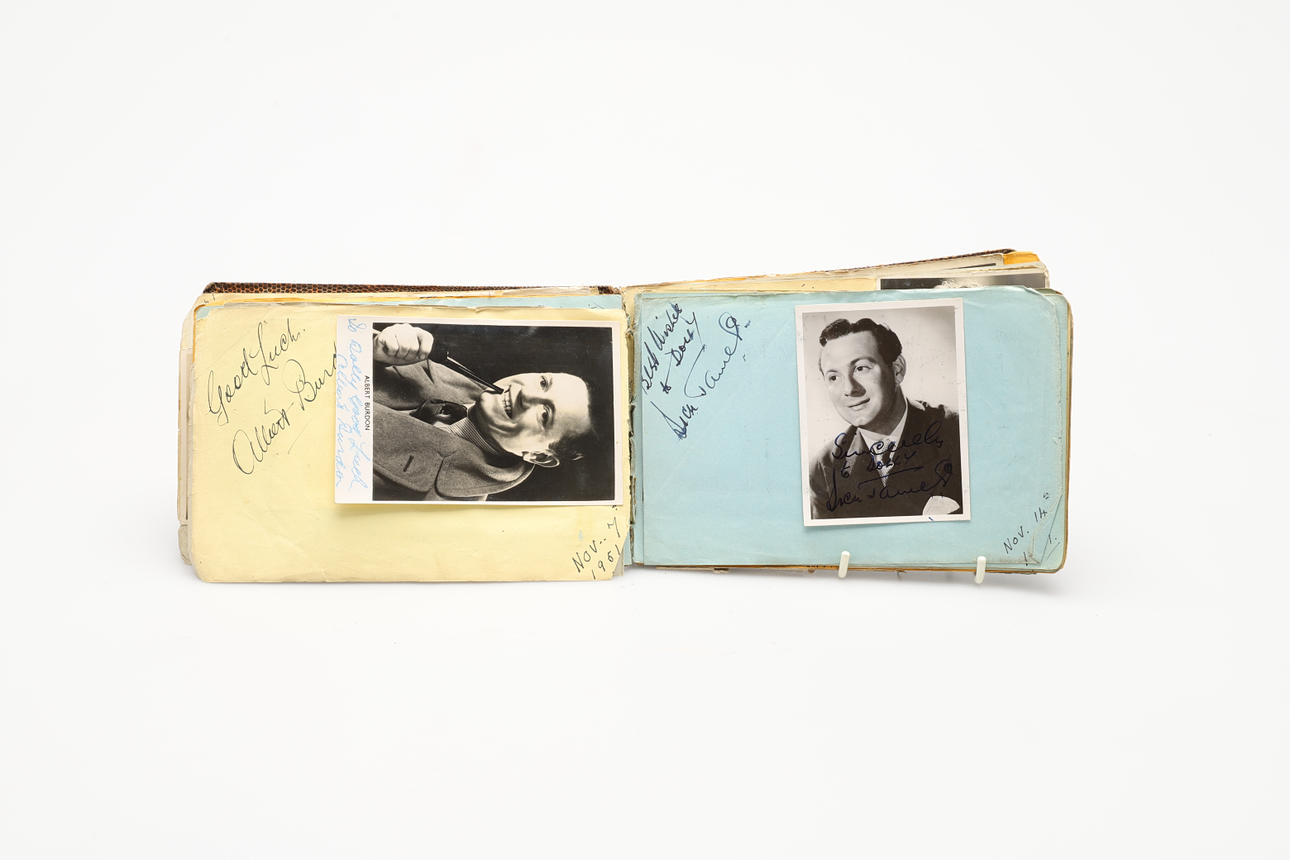 Good Luck.
Albert Burd
ALBERT BURDON
To Dolly Good Luck
Albert Burdon
Nov. 7
1951
Best Wishes
to Dolly
Dick James
Sincerely
to Dolly
Dick James
Nov. 14